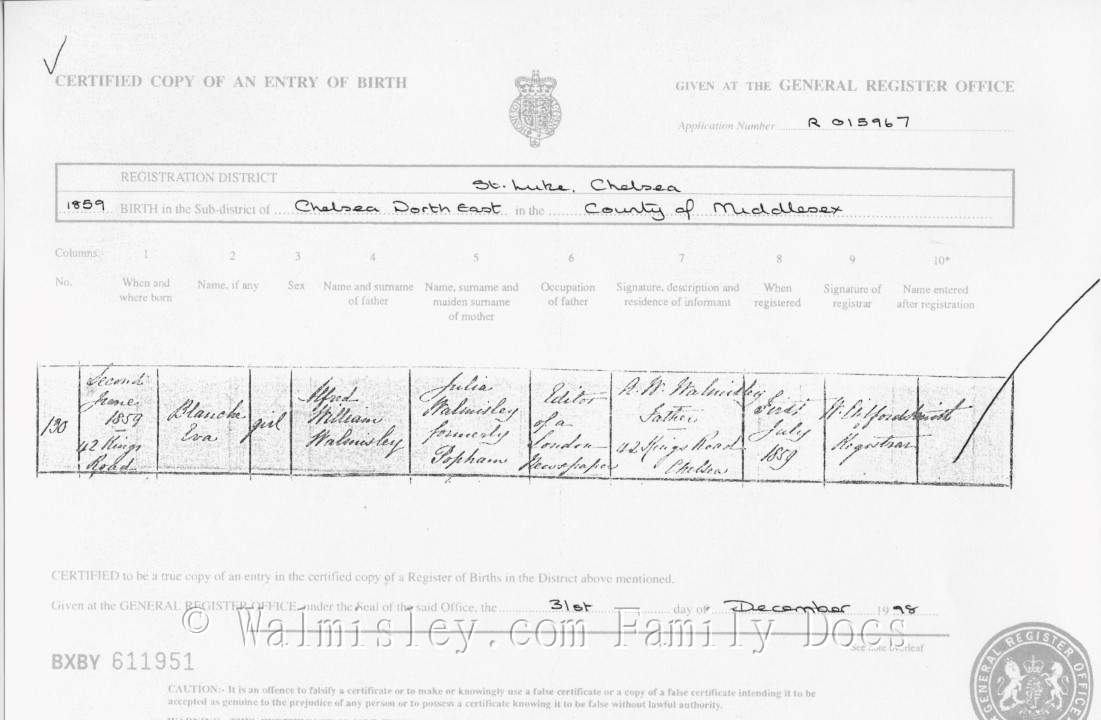 CERTIFIED COPY OF AN ENTRY OF BIRTH
GIVEN AT THE GENERAL REGISTER OFFICE
Application Number R 015967
REGISTRATION DISTRICT St. Luke, Chelsea
1859 BIRTH in the Sub-district of Chelsea North East in the County of Middlesex
Columns:- 1 2 3 4 5 6 7 8 9 10*
No. When and where born Name, if any Sex Name and surname of father Name, surname and maiden surname of mother Occupation of father Signature, description and residence of informant When registered Signature of registrar Name entered after registration
130
Second
June
1859
42 Kings
Road
Blanche
Eva
girl
Alfred
William
Walmisley
Julia
Walmisley
formerly
Popham
Editor
of a
London
Newspaper
A. W. Walmisley
Father
42 Kings Road
Chelsea
First
July
1859
Registrar
CERTIFIED to be a true copy of an entry in the certified copy of a Register of Births in the District above mentioned.
Given at the GENERAL REGISTER OFFICE, under the Seal of the said Office, the 31st day of December 1998
© Walmisley.com Family Docs
See note overleaf
BXBY 611951
GENERAL REGISTER OFFICE
CAUTION:- It is an offence to falsify a certificate or to make or knowingly use a false certificate or a copy of a false certificate intending it to be
accepted as genuine to the prejudice of any person or to possess a certificate knowing it to be false without lawful authority.